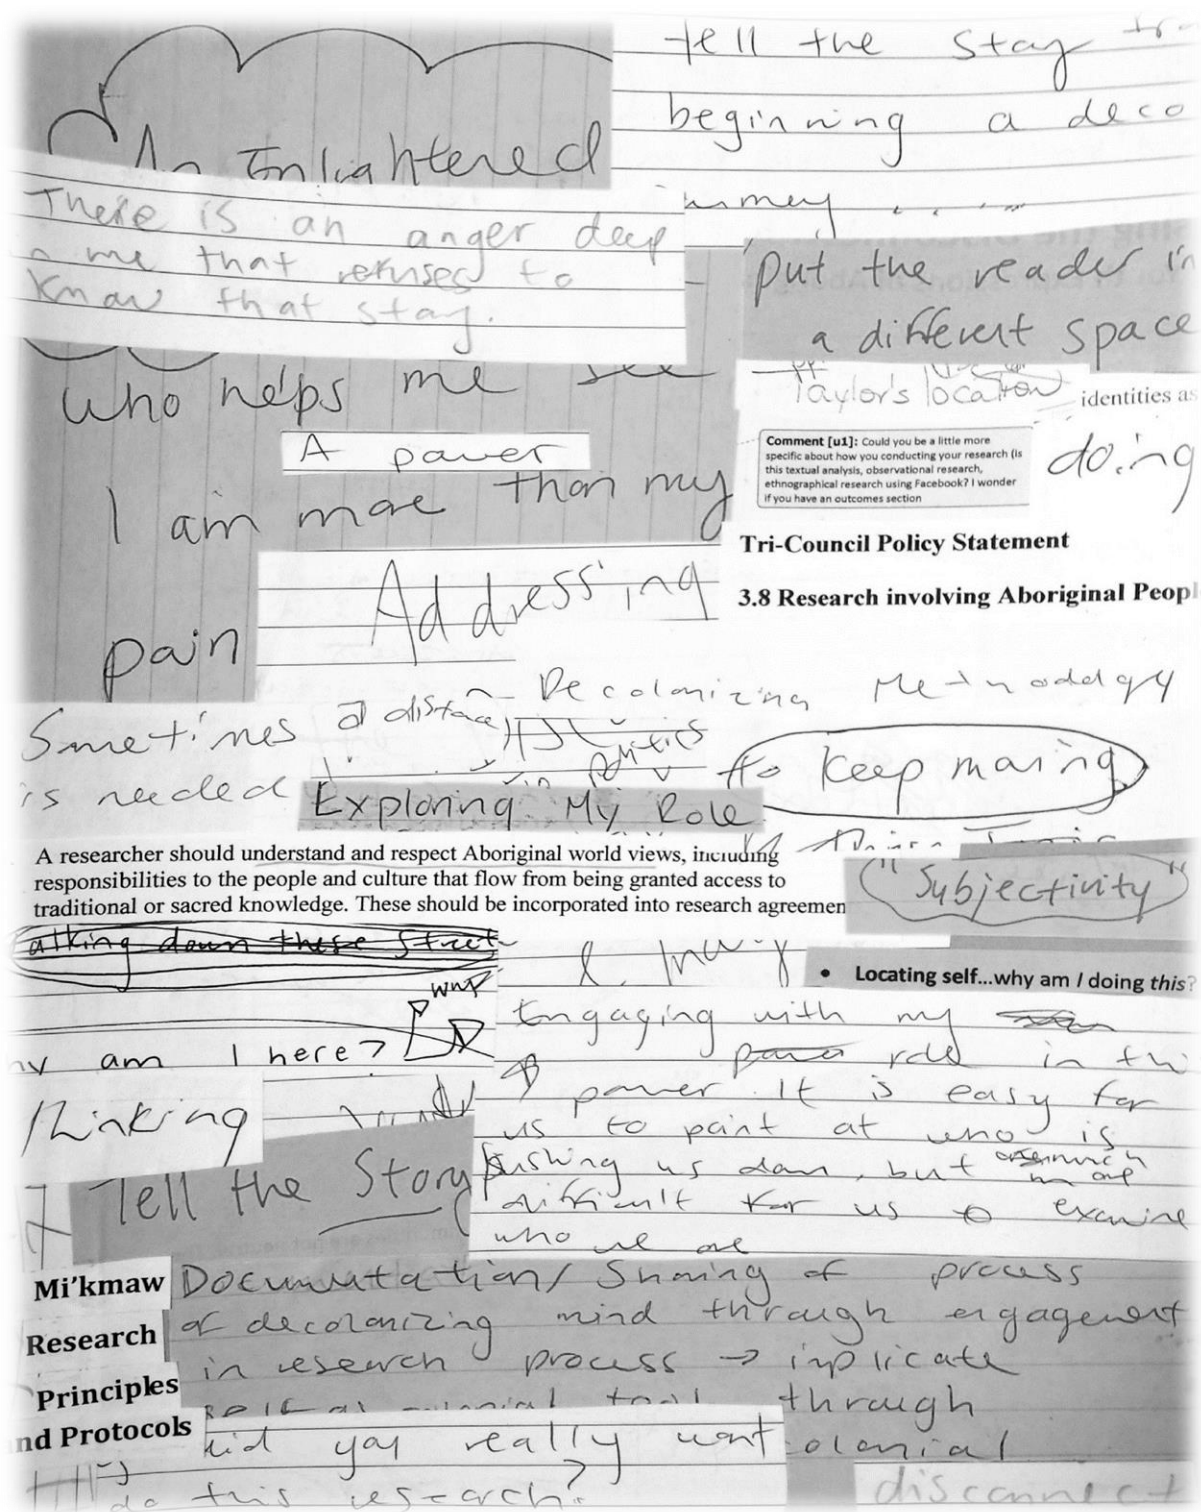 tell the story
beginning a deco
An Enlightered
There is an anger deep
me that refuses to
know that story.
put the reader in
a different space
who helps me see
Taylor's location
identities as
A power
Comment [u1]: Could you be a little more
specific about how you conducting your research (is
this textual analysis, observational research,
ethnographical research using Facebook? I wonder
if you have an outcomes section
doing
I am more than my
pain
Tri-Council Policy Statement
3.8 Research involving Aboriginal Peopl
Addressing
Decolonizing Methodology
Sometimes a distance
is needed
politics
to keep moving
Exploring My Role
A researcher should understand and respect Aboriginal world views, including
responsibilities to the people and culture that flow from being granted access to
traditional or sacred knowledge. These should be incorporated into research agreemen
"Subjectivity"
alking down these street
• Locating self...why am I doing this?
why
Engaging with my
am I here?
role in thi
power. It is easy for
thinking
us to point at who is
pushing us down, but
Tell the Story
difficult for us to examine
who we are
Mi'kmaw
Research
Principles
nd Protocols
Documentation/ Sharing of process
of decolonizing mind through engagement
in research process → implicate
self as colonial tool through
olonial
did you really want
do this research?
disconnect